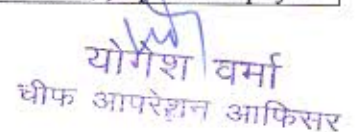 योगेश वर्मा
चीफ आपरेशन आफिसर